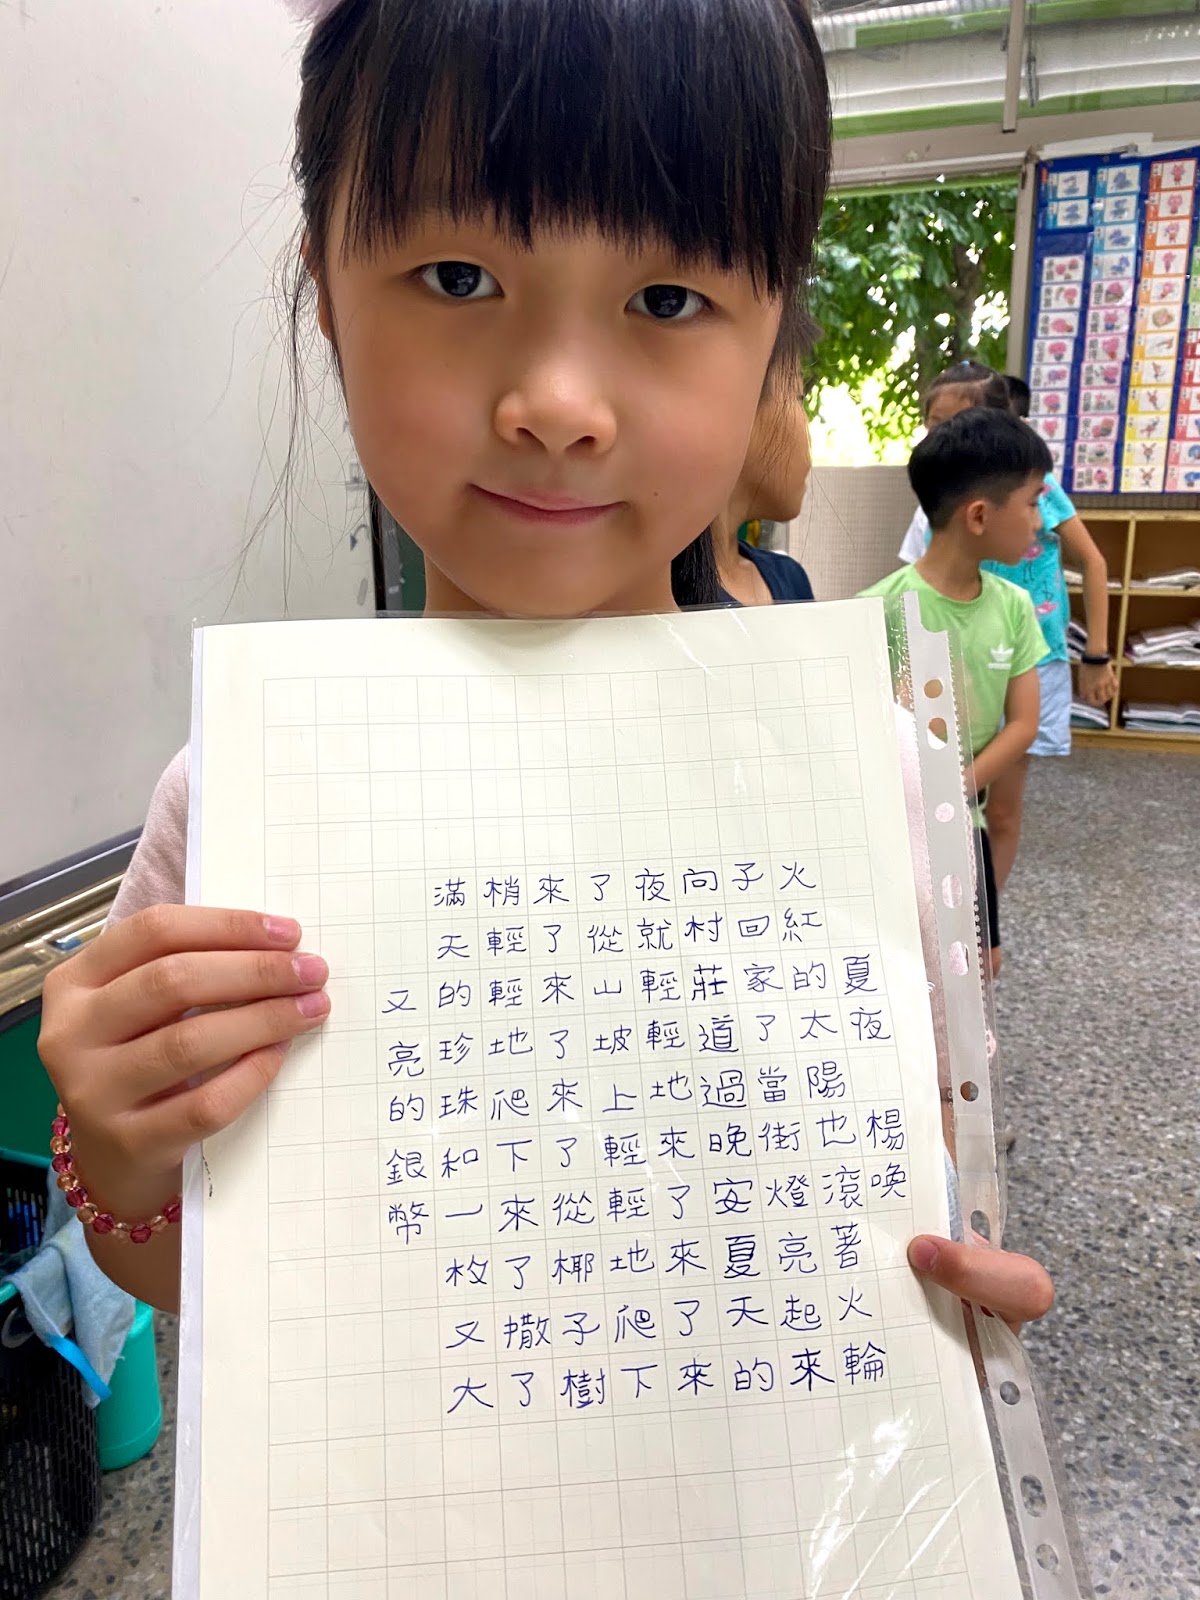 夏夜 楊喚
火紅的太陽也滾著火輪
子回家了當街燈亮起來
向村莊道過晚安夏天的
夜就輕輕地來了來了來
了從山坡上輕輕地爬下
來了來了來了從椰子樹
梢輕輕地爬下來了撒了
滿天的珍珠和一枚又大
又亮的銀幣